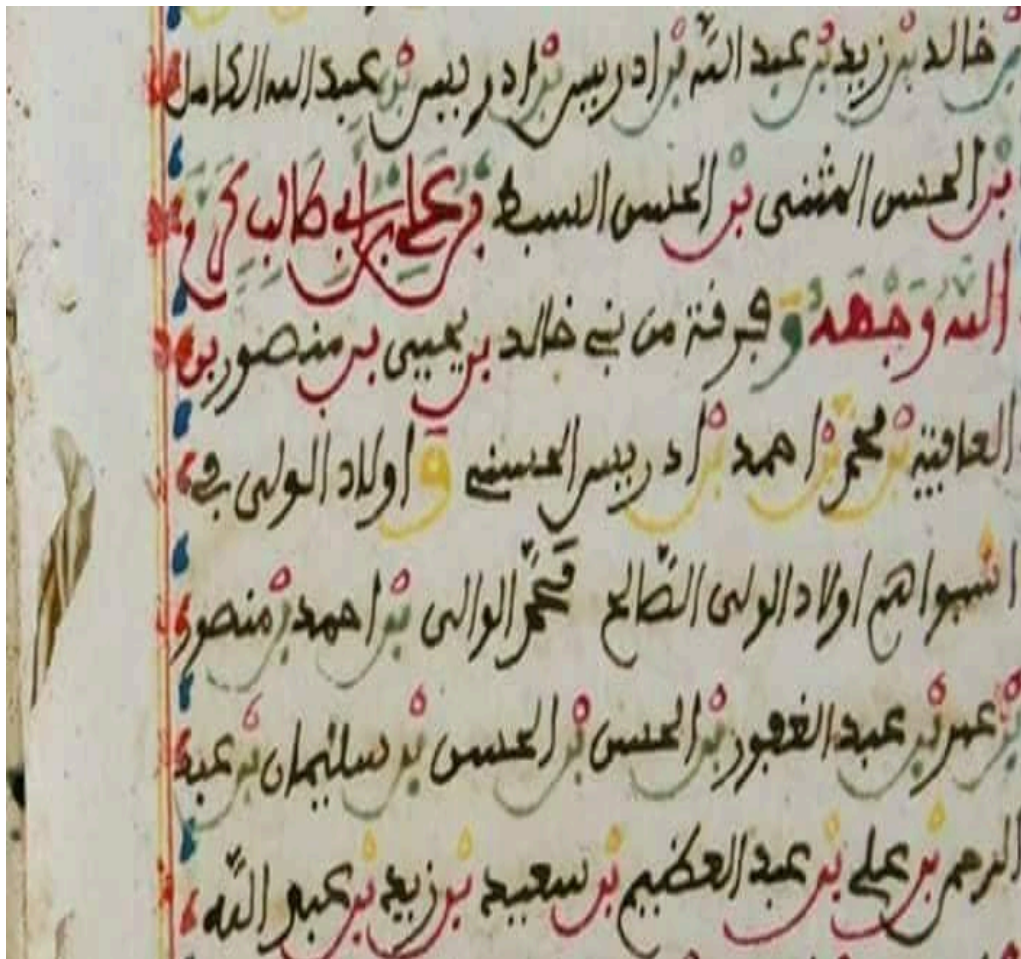 بن خالد بن زيد بن عبد الله بن ادريس بن ادريس بن عبد الله الكامل
بن الحسن المثنى بن الحسن السبط بن علي بن أبي طالب كرم
الله وجهه و فرقة من بني خالد بن يحيى بن منصور بن
العافية بن محمد بن احمد بن ادريس الحسني و اولاد الولى في
اشبوا هم اولاد الولى الصالح محمد الوالى بن احمد بن منصور
بن عمر بن عبد الغفور بن الحسن بن الحسن بن سليمان بن عبد
الرحمن بن علي بن عبد العظيم بن سعيد بن زيد بن عبد الله